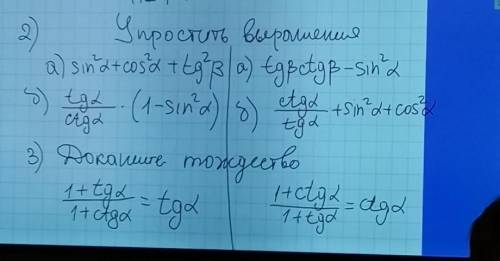 2) Упростить выражения
а) sin²α+cos²α+tg²β а) tgβctgβ-sin²α
б) tgα/ctgα · (1-sin²α) б) ctgα/tgα +sin²α+cos²α
3) Докажите тождество
1+tgα/1+ctgα = tgα 1+ctgα/1+tgα = ctgα